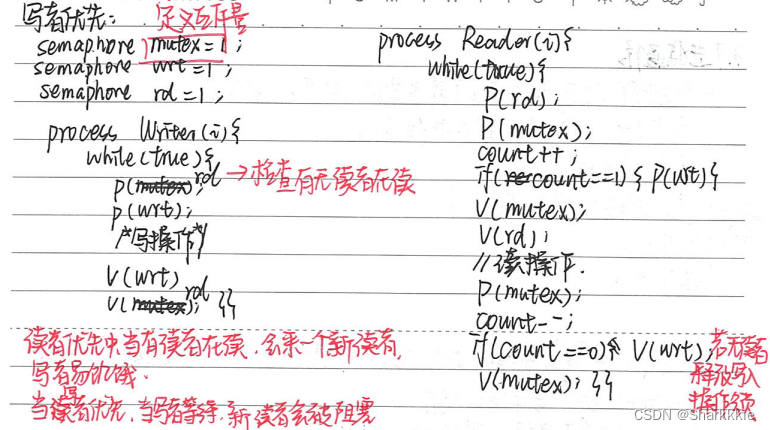 写者优先: 定义互斥量
semaphore mutex=1;
semaphore wrt=1;
semaphore rd=1;
process Writer(i){
while(true){
p(rd); →检查有无读者在读
p(wrt);
/*写操作*/
V(wrt)
V(rd); }}
读者优先中当有读者在读,会来一个新读者,
写者易饥饿.
当写者优先,当写者等待,新读者会被阻塞
process Reader(i){
while(true){
P(rd);
P(mutex);
count++;
if(count==1){P(wrt){
V(mutex);
V(rd);
//读操作.
P(mutex);
count--;
if(count==0){ V(wrt);
V(mutex); }}
若无读者
释放写入
CSDN @Sharkkkie